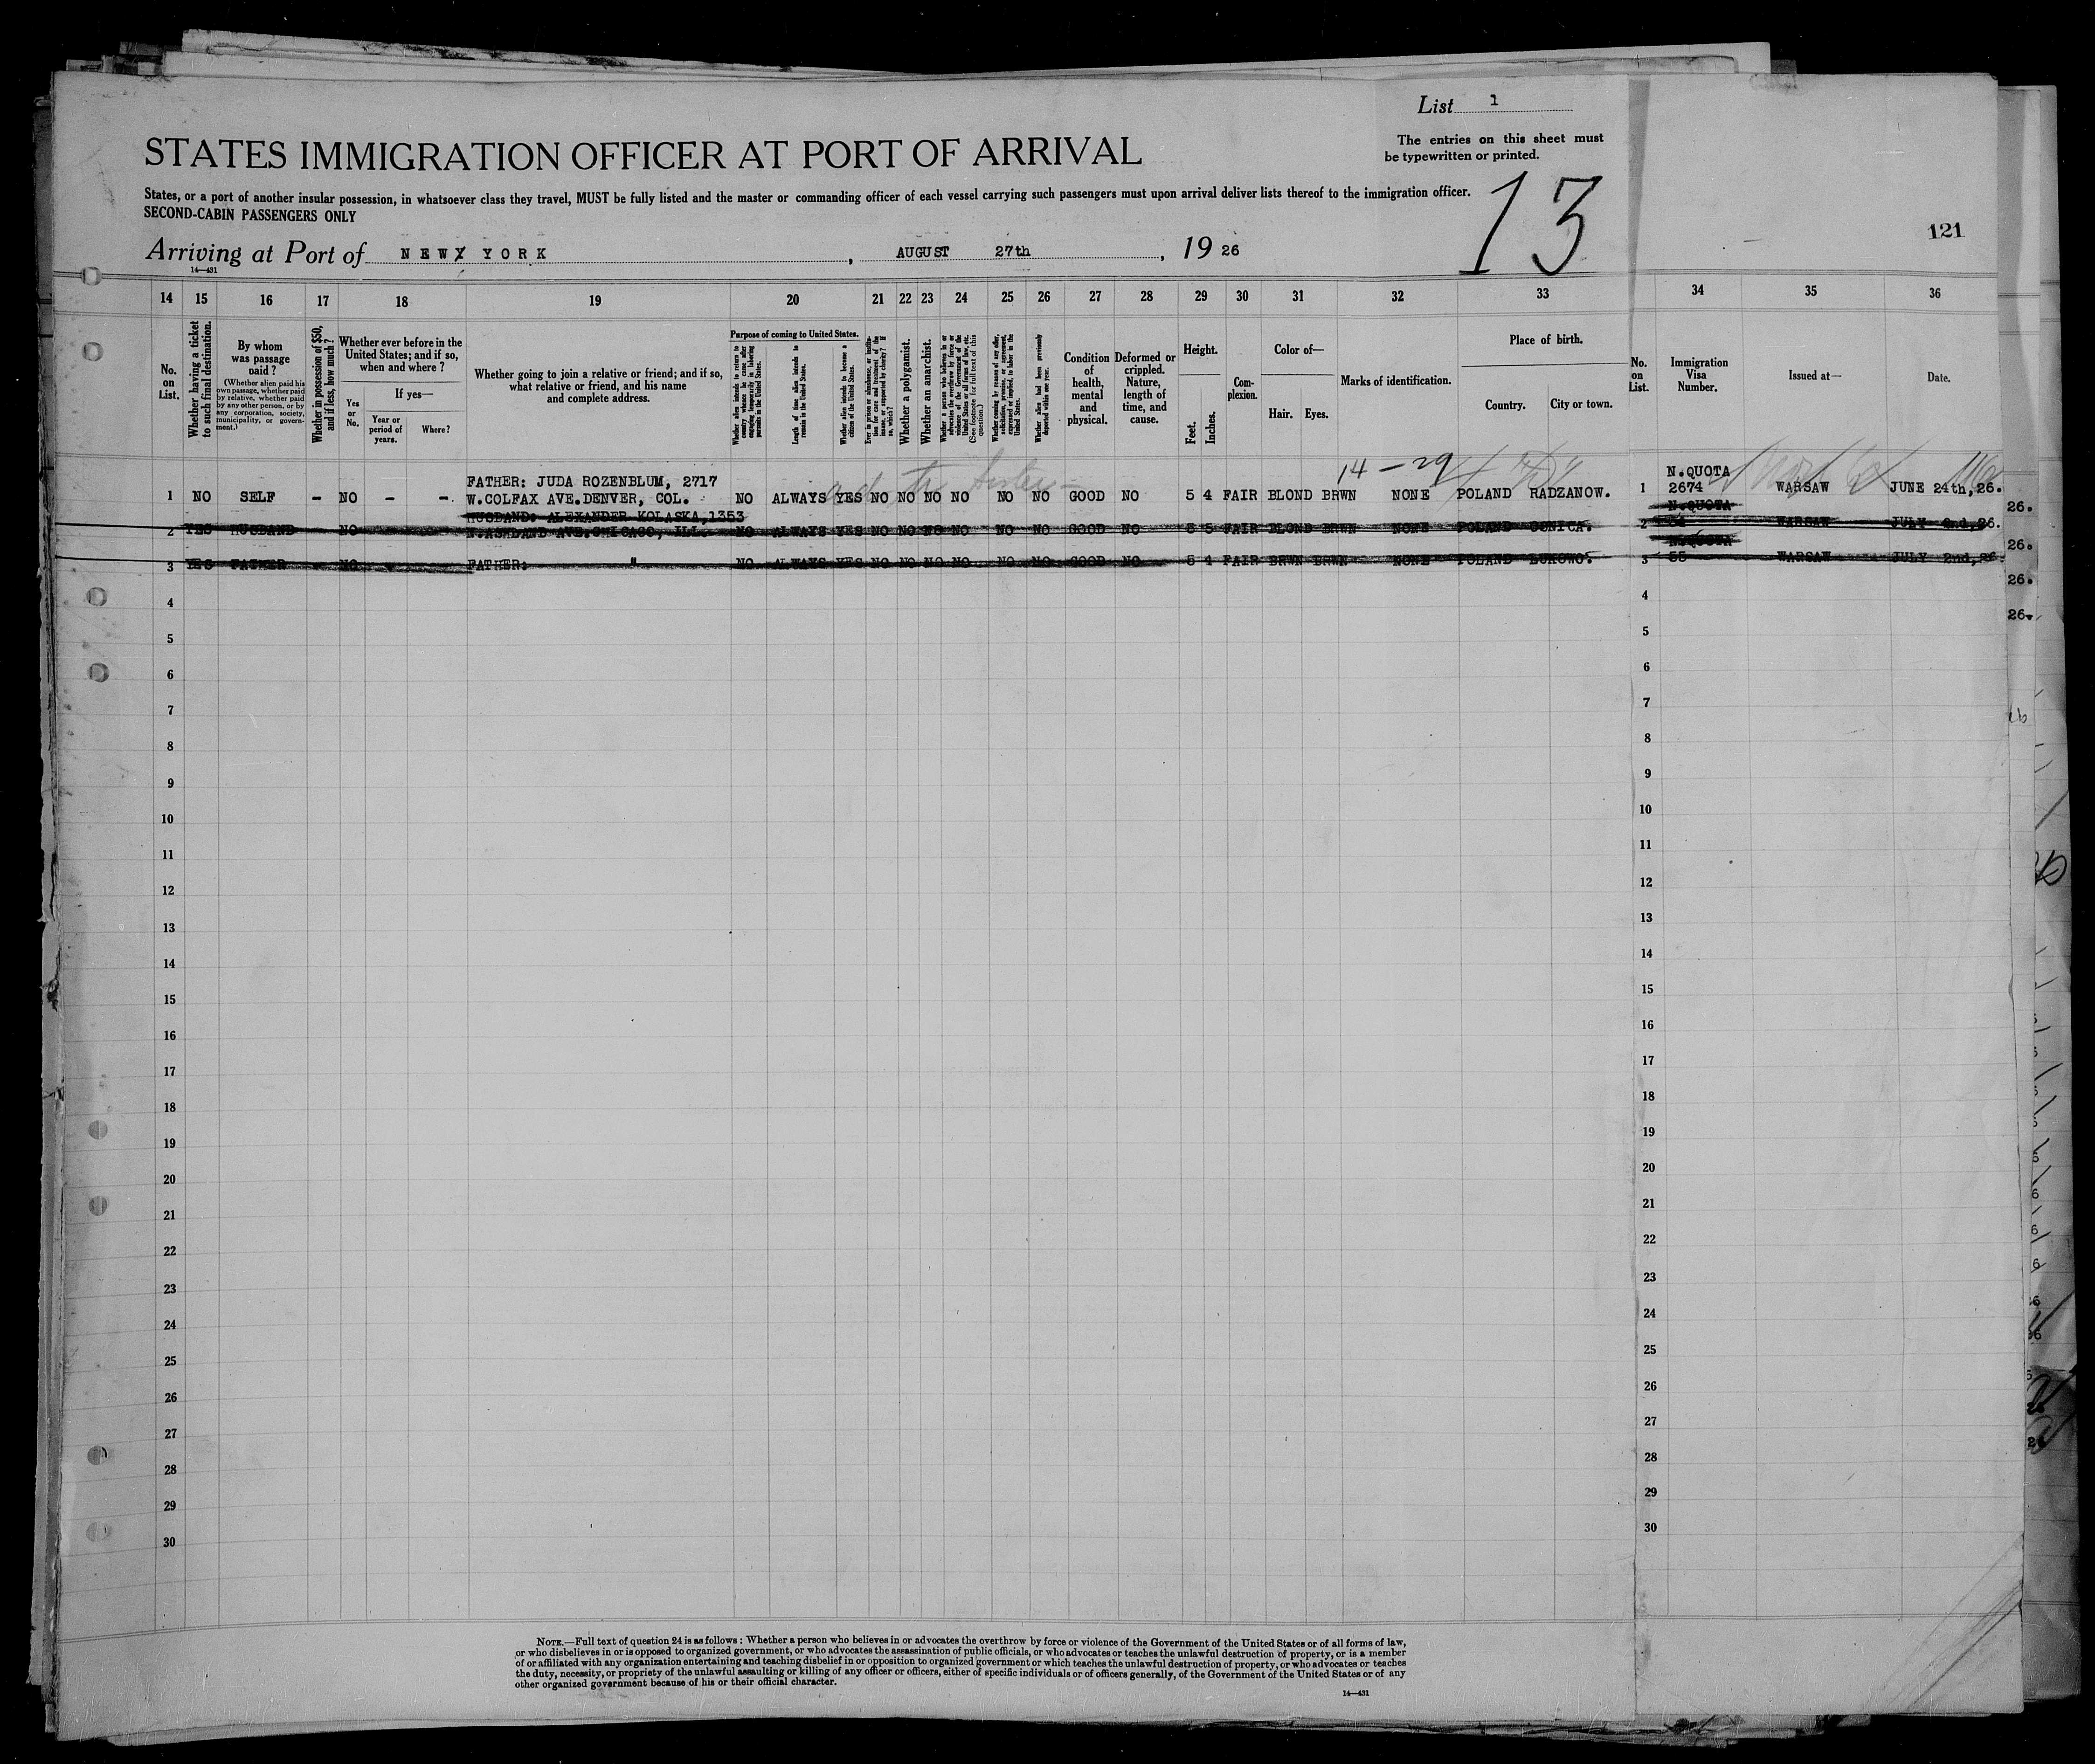 List 1
The entries on this sheet must
be typewritten or printed.
STATES IMMIGRATION OFFICER AT PORT OF ARRIVAL
States, or a port of another insular possession, in whatsoever class they travel, MUST be fully listed and the master or commanding officer of each vessel carrying such passengers must upon arrival deliver lists thereof to the immigration officer.
SECOND-CABIN PASSENGERS ONLY
13
121
Arriving at Port of NEWX YORK, AUGUST 27th, 19 26
14—431
14 15 16 17 18 19 20 21 22 23 24 25 26 27 28 29 30 31 32 33 34 35 36
No. on List.
Whether having a ticket to such final destination.
By whom was passage paid?
(Whether alien paid his own passage, whether paid by relative, whether paid by any other person, or by any corporation, society, municipality, or government.)
Whether in possession of $50, and if less, how much?
Whether ever before in the United States; and if so, when and where?
Yes or No.
If yes—
Year or period of years.
Where?
Whether going to join a relative or friend; and if so, what relative or friend, and his name and complete address.
Purpose of coming to United States.
Whether alien intends to return to country whence he came after engaging temporarily in laboring pursuits in the United States.
Length of time alien intends to remain in the United States.
Whether alien intends to become a citizen of the United States.
Whether a polygamist.
Whether an anarchist.
Condition of health, mental and physical.
Deformed or crippled. Nature, length of time, and cause.
Height.
Feet.
Inches.
Complexion.
Color of—
Hair.
Eyes.
Marks of identification.
Place of birth.
Country.
City or town.
No. on List.
Immigration Visa Number.
Issued at—
Date.
14 - 29
FATHER: JUDA ROZENBLUM, 2717 N.QUOTA
1 NO SELF - NO - - W.COLFAX AVE.DENVER, COL. NO ALWAYS YES NO NO NO NO NO NO GOOD NO 5 4 FAIR BLOND BRWN NONE POLAND RADZANOW. 1 2674 WARSAW JUNE 24th,26.
HUSBAND: ALEXANDER KOLASKA,1353 N.QUOTA
2 YES HUSBAND NO N.ASHLAND AVE.CHICAGO, ILL. NO ALWAYS YES NO NO NO NO NO NO GOOD NO 5 5 FAIR BLOND BRWN NONE POLAND 2 WARSAW JULY 2nd,26.
N.QUOTA
3 YES FATHER NO FATHER: " NO ALWAYS YES NO NO NO NO NO NO GOOD NO 5 4 FAIR BRWN BRWN NONE POLAND LUKOWO. 3 55 WARSAW JULY 2nd,26.
26.
26.
26.
26.
4 4
5 5
6 6
7 7
8 8
9 9
10 10
11 11
12 12
13 13
14 14
15 15
16 16
17 17
18 18
19 19
20 20
21 21
22 22
23 23
24 24
25 25
26 26
27 27
28 28
29 29
30 30
NOTE.—Full text of question 24 is as follows: Whether a person who believes in or advocates the overthrow by force or violence of the Government of the United States or of all forms of law,
or who disbelieves in or is opposed to organized government, or who advocates the assassination of public officials, or who advocates or teaches the unlawful destruction of property, or is a member
of or affiliated with any organization entertaining and teaching disbelief in or opposition to organized government or which teaches the unlawful destruction of property, or who advocates or teaches
the duty, necessity, or propriety of the unlawful assaulting or killing of any officer or officers, either of specific individuals or of officers generally, of the Government of the United States or of any
other organized government because of his or their official character.
14—431